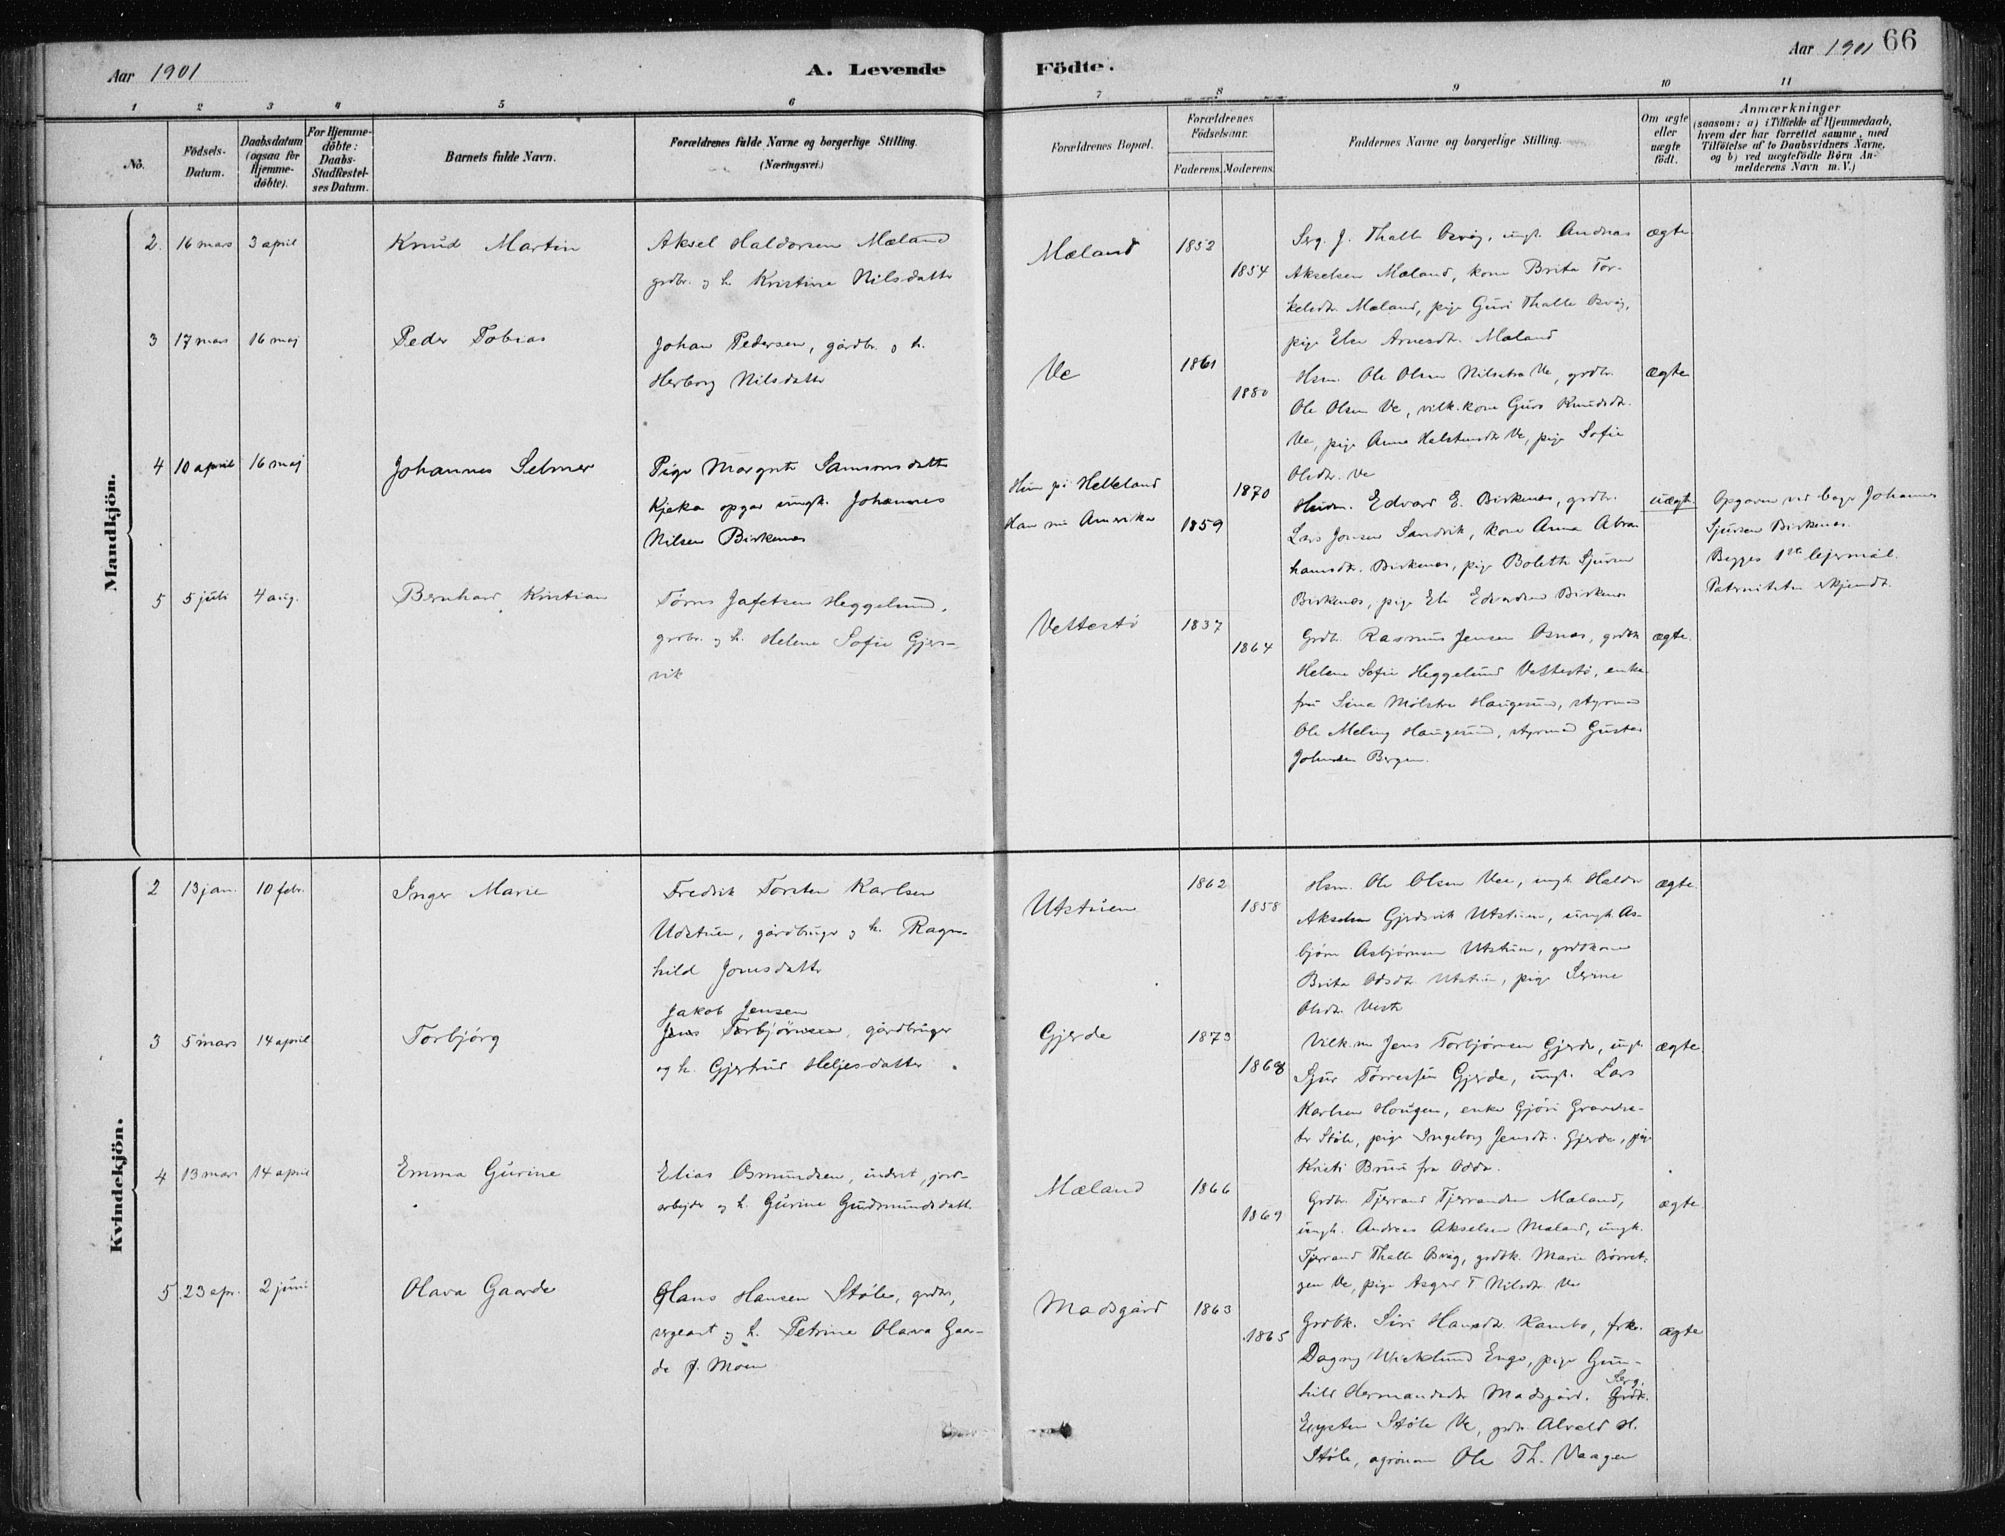 Aar 1901
A. Levende
Födte.
Aar 1901 66
1 2 3 4 5 6 7 8 9 10 11
No.
Födsels-
Datum.
Daabsdatum
(ogsaa for
Hjemme-
döbte).
For Hjemme-
döbte:
Daabs-
Stadfæstel-
ses Datum.
Barnets fulde Navn.
Forældrenes fulde Navne og borgerlige Stilling.
(Næringsvei.)
Forældrenes Bopæl.
Forældrenes
Födselsaar.
Faderens. Moderens.
Faddernes Navne og borgerlige Stilling.
Om ægte
eller
uægte
født.
Anmærkninger
(saasom: a) i Tilfælde af Hjemmedaab,
hvem der har forrettet samme, med
Tilföielse af to Daabsvidners Navne,
og b) ved uægtefödte Börn An-
melderens Navn m. V.)
Mandkjön.
2. 16 mars 3 april
Knud Martin
Aksel Haldorsen Mæland
grdbr. og h. Kristine Nilsdatter
Mæland
1852
1854
Serg. J. Thalle Osvåg, ungk. Andreas
Akselsen Mæland, kone Brita Tor-
kelsdtr. Mæland, pige Guri Thalle Osvåg,
pige Else Arnesdtr. Mæland
ægte
3 17 mars 16 maj
Peder Tobias
Johan Pedersen, gårdbr. og h.
Herborg Nilsdatter
Ve
1861
1880
Hsm. Ole Olsen Nilsetra Ve, grdbr.
Ole Olsen Ve, vilk.kone Guro Knudsdtr.
Ve, pige Anna Halstensdtr Ve, pige Sofie
Olsdtr. Ve
ægte
4 10 april 16 maj
Johannes Selmer
Pige Margrete Samsonsdatter
Kjeka opgav ungk. Johannes
Nilsen Birkenes
Hun på Helleland
Han nu Amerika
1870
1859
Husm. Edvard E. Birkenes, grdbr.
Lars Jonsen Sandvik, kone Anna Abra-
hamsdtr. Birkenes, pige Bolette Sjursen
Birkenes, pige Eli Edvardsen Birkenes
uægte
Opgaven ved bager Johannes
Sjursen Birkenes.
Begges 1ste lejermål.
Paterniteten erkjendt.
5 5 juli 4 aug.
Bernhard Kristian
Tørres Jafetsen Heggelund,
grdbr. og h. Helene Sofie Gjers-
vik
Vettestø
1837
1864
Grdbr. Rasmus Jensen Osnes, grdbk
Helene Sofie Heggelund Vettestø, enke-
fru Sina Mølstre Haugesund, styrmand
Ole Meling Haugesund, styrmand Gustav
Johnsen Bergen.
ægte.
Kvindekjön.
2 13 jan. 10 febr.
Inger Marie
Fredrik Torsten Karlsen
Udstuen, gårdbruger og h. Ragn-
hild Jonsdatter
Utstuen
1862
1858
Hsm. Ole Olsen Vee, ungk. Haldor
Akselsen Gjerdsvik Utstuen, ungk. As-
bjørn Asbjørnsen Utstuen, grdbkone
Brita Odsdtr. Utstuen, pige Serine
Olsdtr. Ve
ægte
3 5 mars 14 april
Torbjørg
Jakob Jensen
Jens Torbjørnsen, gårdbruger
og h. Gjertrud Heljesdatter.
Gjerde
1873
1868
Vilk.m Jens Torbjørnsen Gjerde, ungk.
Sjur Tørressen Gjerde, ungk. Lars
Karlsen Hougen, enke Gjøri
Støle, pige Ingeborg Jensdtr. Gjerde, pige
Kristi Bruu fra Odda.
ægte
4 13 mars 14 april
Emma Gurine
Elias Osmundsen, inderst, jord-
arbejder og h. Gurine Gudmundsdatter
Mæland
1866
1869
Grdbr. Tjerrand Tjerrandsen Mæland,
ungk. Andreas Akselsen Mæland, ungk.
Tjerrand Thalle Osvåg, grdbk. Marie Børret-
zen Ve, pige Asgerd T Nilsdtr. Ve
ægte
5 23 apr. 2 juni
Olava Gaarde
Hans Hansen Støle, grdbr,
sergeant og h. Petrine Olava Gaar-
de f. Moen
Madsgård
1863
1865
Grdbk. Siri Hansdtr. Kambo, frk.
Dagny Wicklund Enge, pige Gun-
hild Hermandsdtr Madsgård. Serg. Grdb.
Eysten Støle Ve, grdbr. Alvald H.
Støle, agronom Ole Th. Vaagen
ægte